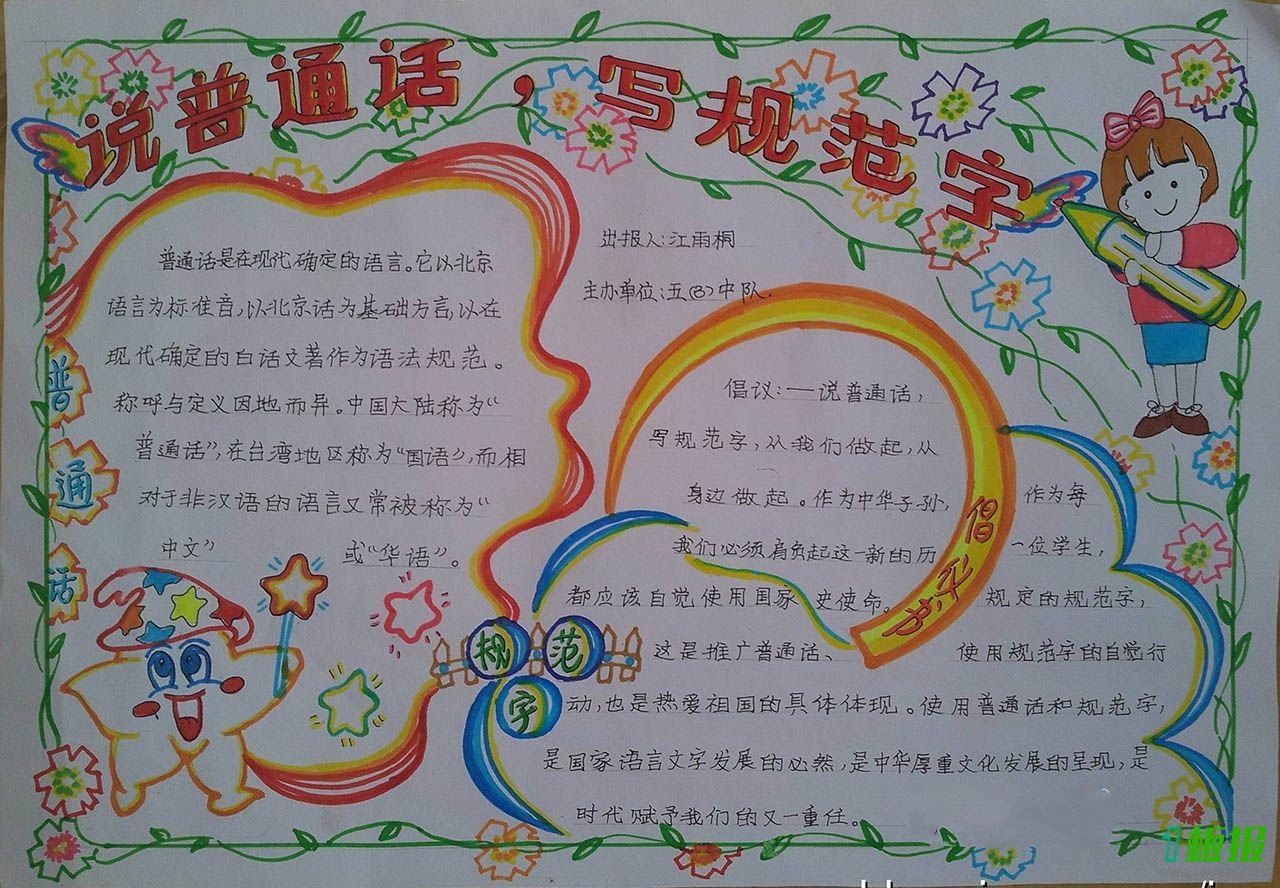 说普通话，写规范字
出报人:江雨桐
主办单位:五(3)中队.
普通话是在现代确定的语言。它以北京
语言为标准音,以北京话为基础方言,以在
现代确定的白话文著作为语法规范。
称呼与定义因地而异。中国大陆称为“
普通话”,在台湾地区称为“国语”,而相
对于非汉语的语言又常被称为“
中文” 或“华语”。
普
通
话
倡议:一说普通话,
写规范字,从我们做起,从
身边做起。作为中华子孙,
我们必须肩负起这一新的历
史使命。
倡议书
作为每
一位学生,
都应该自觉使用国家
规定的规范字,
这是推广普通话、
使用规范字的自觉行
动,也是热爱祖国的具体体现。使用普通话和规范字,
是国家语言文字发展的必然,是中华厚重文化发展的呈现,是
时代赋予我们的又一重任。
规范
字
1板报